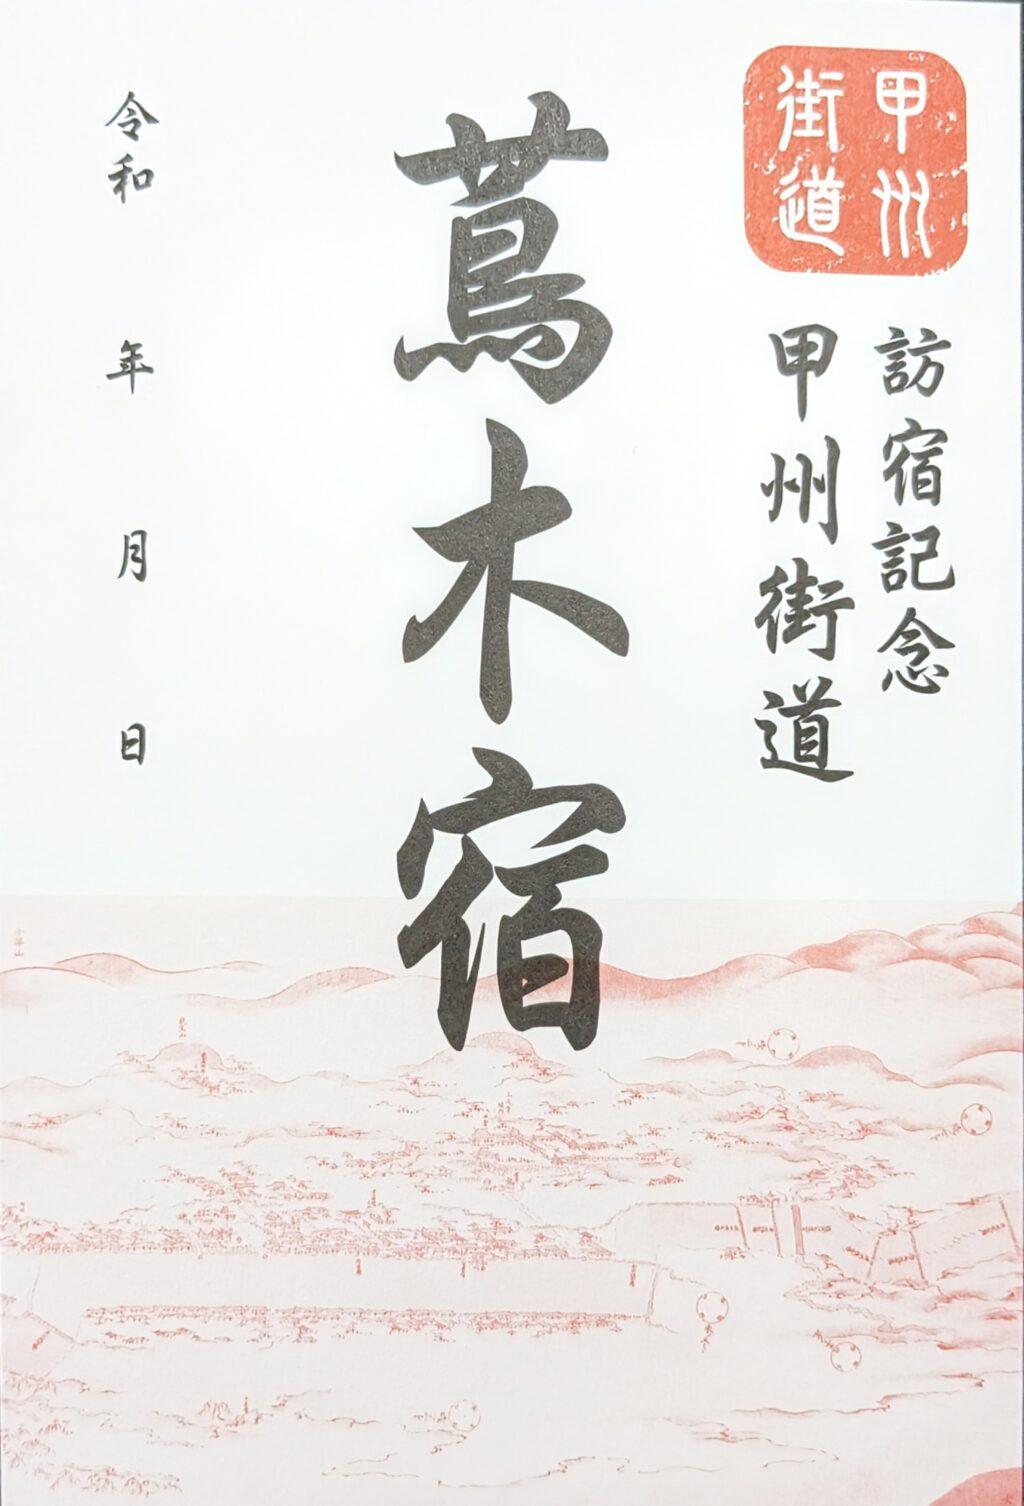 甲州
街道
訪宿記念
甲州街道
蔦木宿
令和　年　月　日